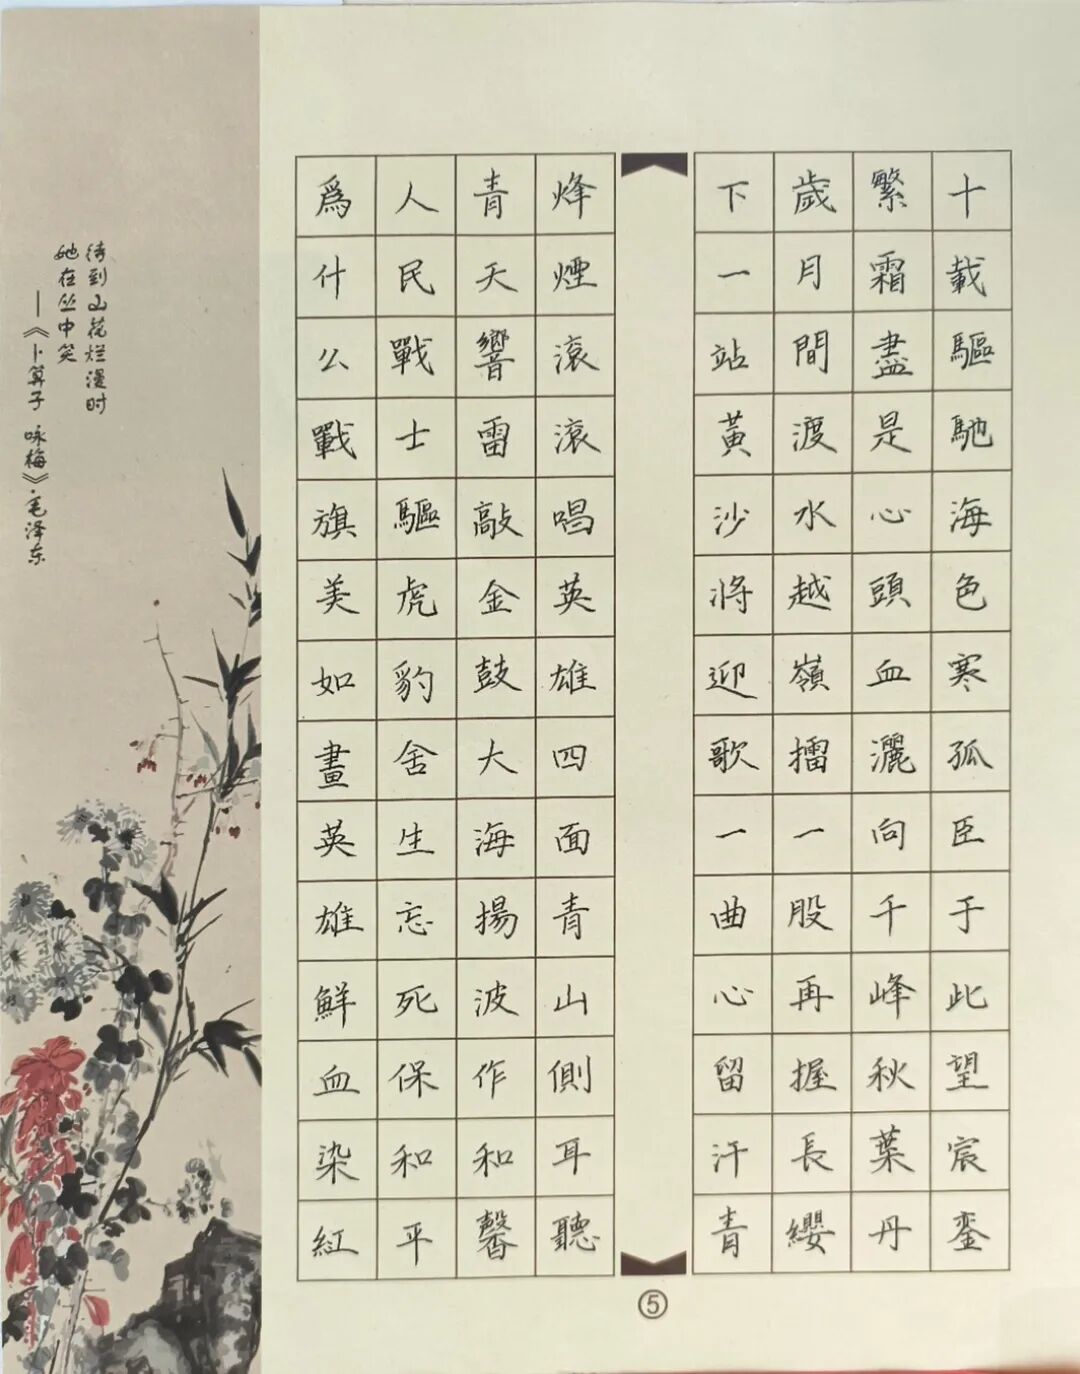 十載驅馳海色寒孤臣于此望宸銮
繁霜盡是心頭血灑向千峰秋葉丹
歲月間渡水越嶺擂一股再握長纓
下一站黃沙將迎歌一曲心留汗青
烽煙滾滾唱英雄四面青山側耳聽
青天響雷敲金鼓大海揚波作和馨
人民戰士驅虎豹舍生忘死保和平
爲什么戰旗美如畫英雄鮮血染紅
待到山花烂漫时
她在丛中笑
—《卜算子 咏梅》·毛泽东
⑤